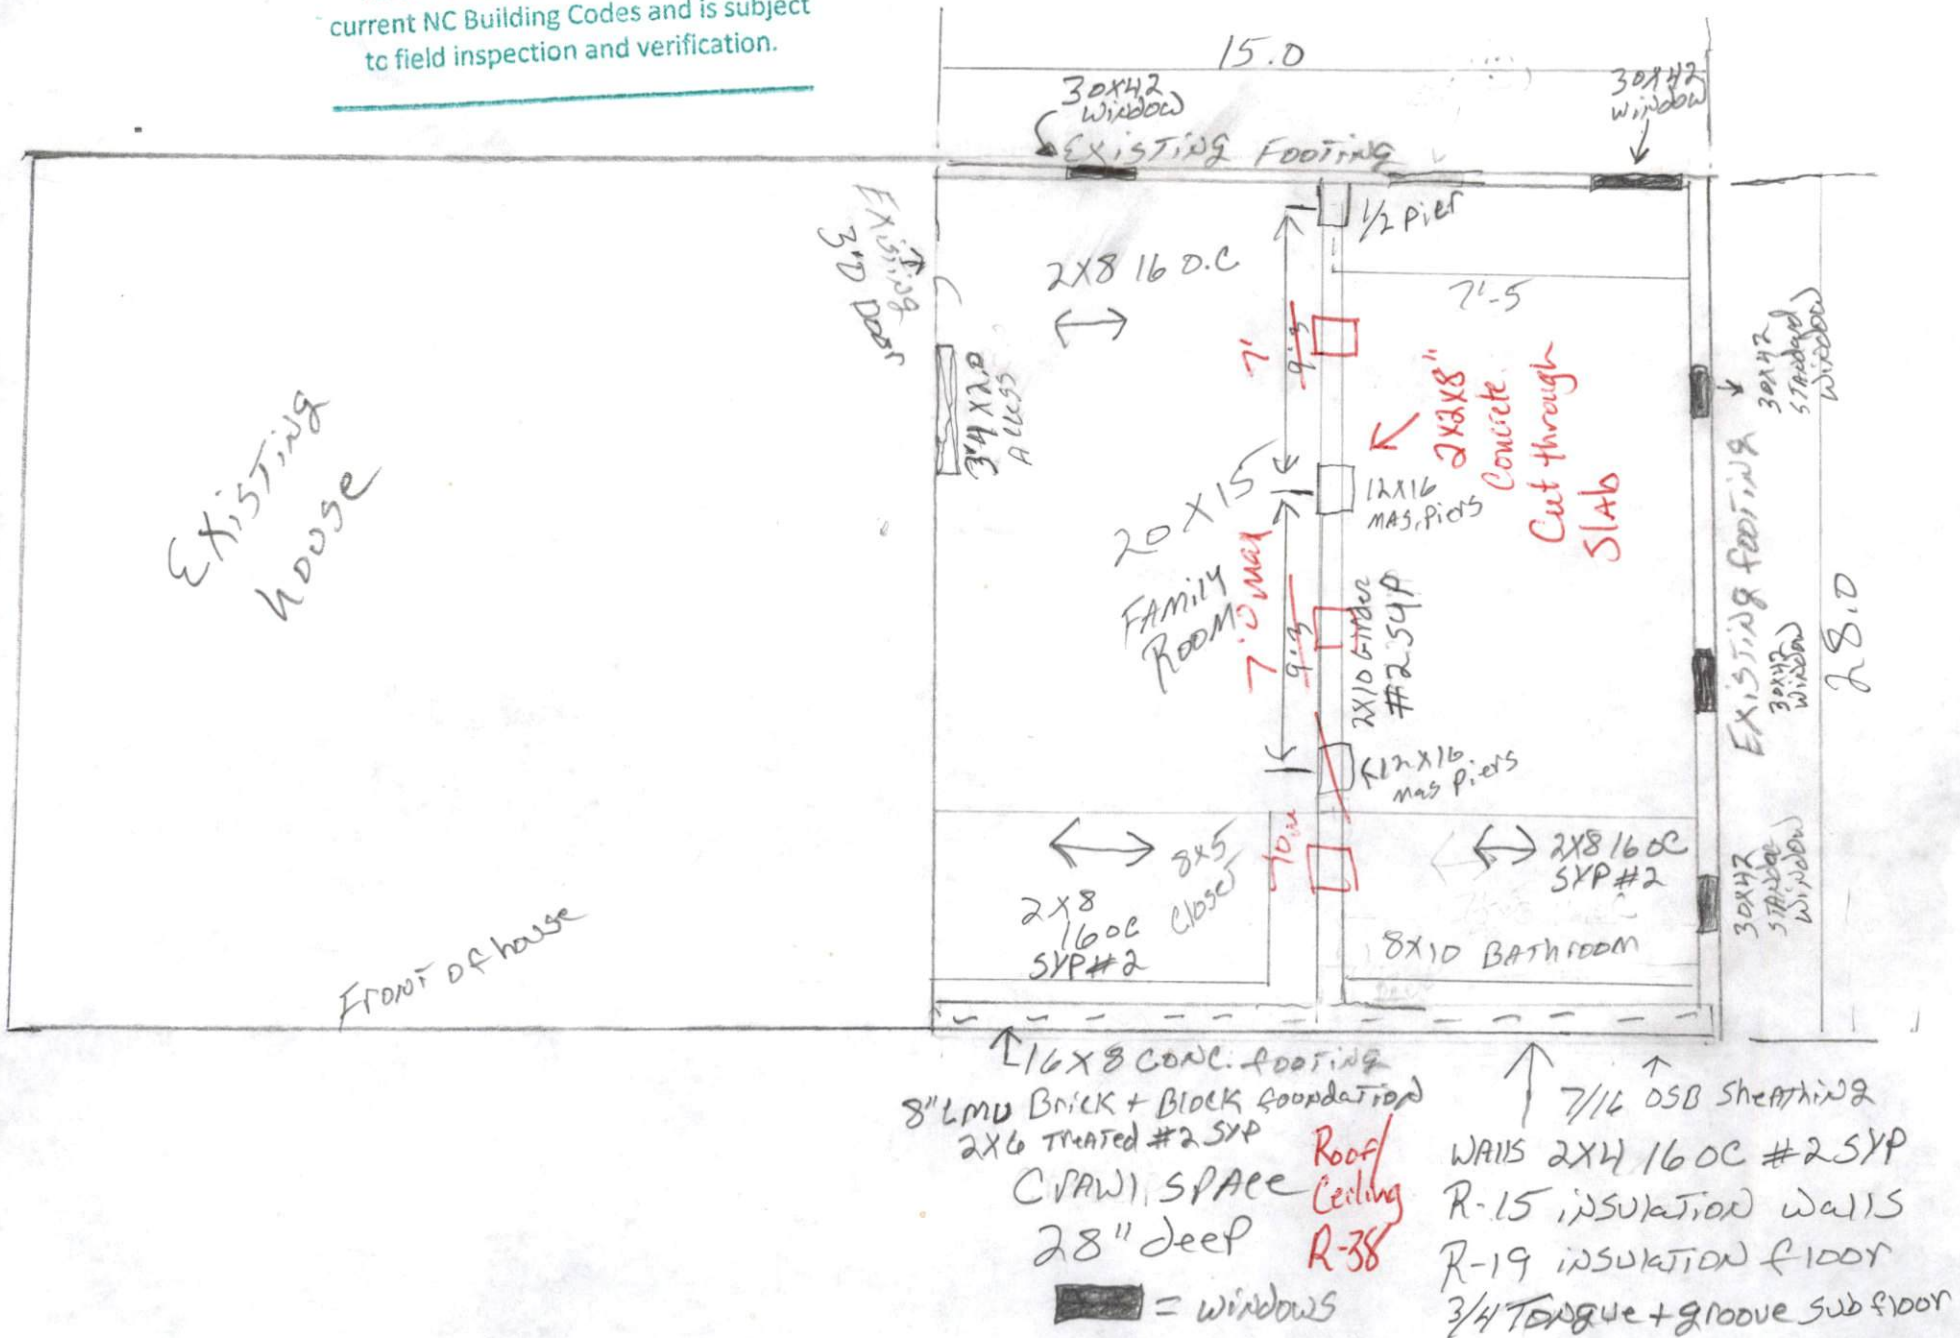 current NC Building Codes and is subject
to field inspection and verification.
15.0
30X42
window
30X42
window
Existing Footing
Existing
3'0 Door
1/2 pier
2X8 16 O.C
7'-5
3'4 X 2.0
Access
7'
9'3
2X2X8"
Concrete
Cut through
SLAb
30X42
STANdard
window
12X16
MAS. Piers
20 X 15
FAMily
ROOM
7'0 Max
9'3
2X10 Girder
#2 SYP
Existing footing
30X42
window
28.0
Existing
house
12X16
mas Piers
8x5
Closet
2X8
16 OC
SYP#2
2X8 16 OC
SYP #2
30X42
window
8X10 BAThroom
Front of house
16X8 CONC. footing
8" CMU Brick + Block foundation
2X6 Treated #2 SYP
CrAwl SPAce
28" deep
= windows
Roof/
Ceiling
R-38
7/16 OSB SheAthing
WAlls 2X4 16 OC #2 SYP
R-15 insulation walls
R-19 insulation floor
3/4 Tongue + groove sub floor